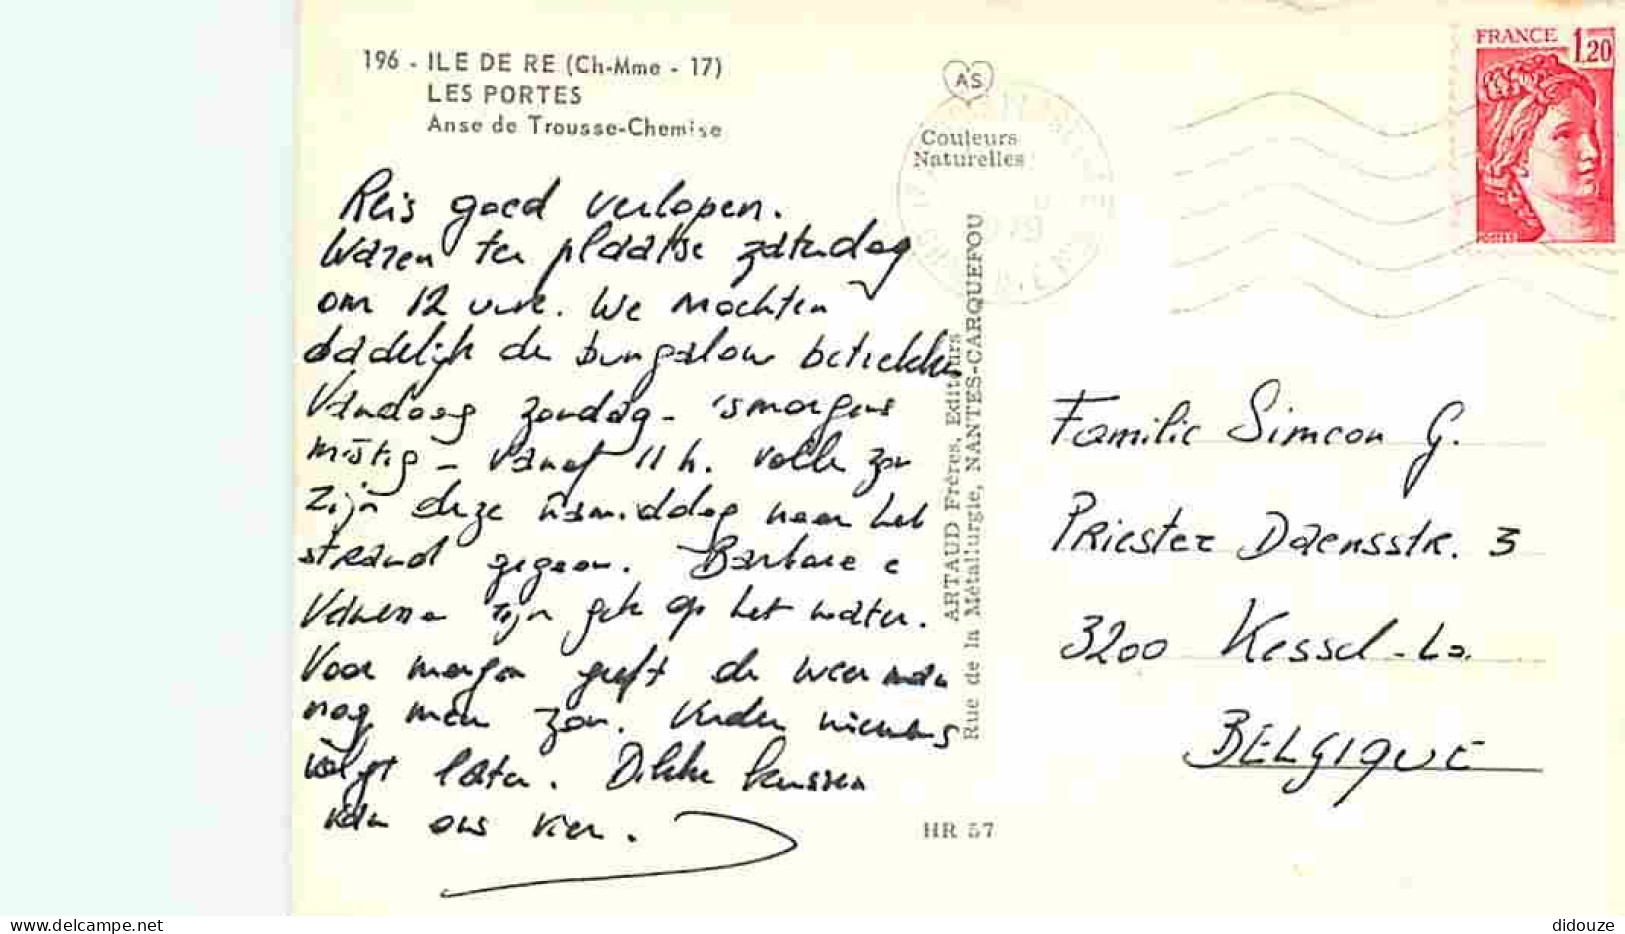 196 - ILE DE RE (Ch-Mme - 17)
LES PORTES
Anse de Trousse-Chemise
Reis goed verlopen.
Waren ter plaatse zaterdag
om 12 uur. We mochten
dadelijk de bungalow betrekken
Vandaag zondag - 'smorgens
mistig - Vanaf 11 h. volle zon
Zijn deze namiddag naar het
strand gegaan. Barbara e
Vanessa zijn gek op het water.
Voor morgen geeft de weerman
nog meer zon. Verder nieuws
volgt later. Dikke kussen
van ons vier.
AS
Couleurs
Naturelles
ARTAUD Frères, Editeurs
Rue de la Métallurgie, NANTES-CARQUEFOU
HR 57
FRANCE 1,20
POSTES
Familie Simeon G.
Priester Daensstr. 3
3200 Kessel-Lo.
BELGIQUE
delcampe.net
didouze